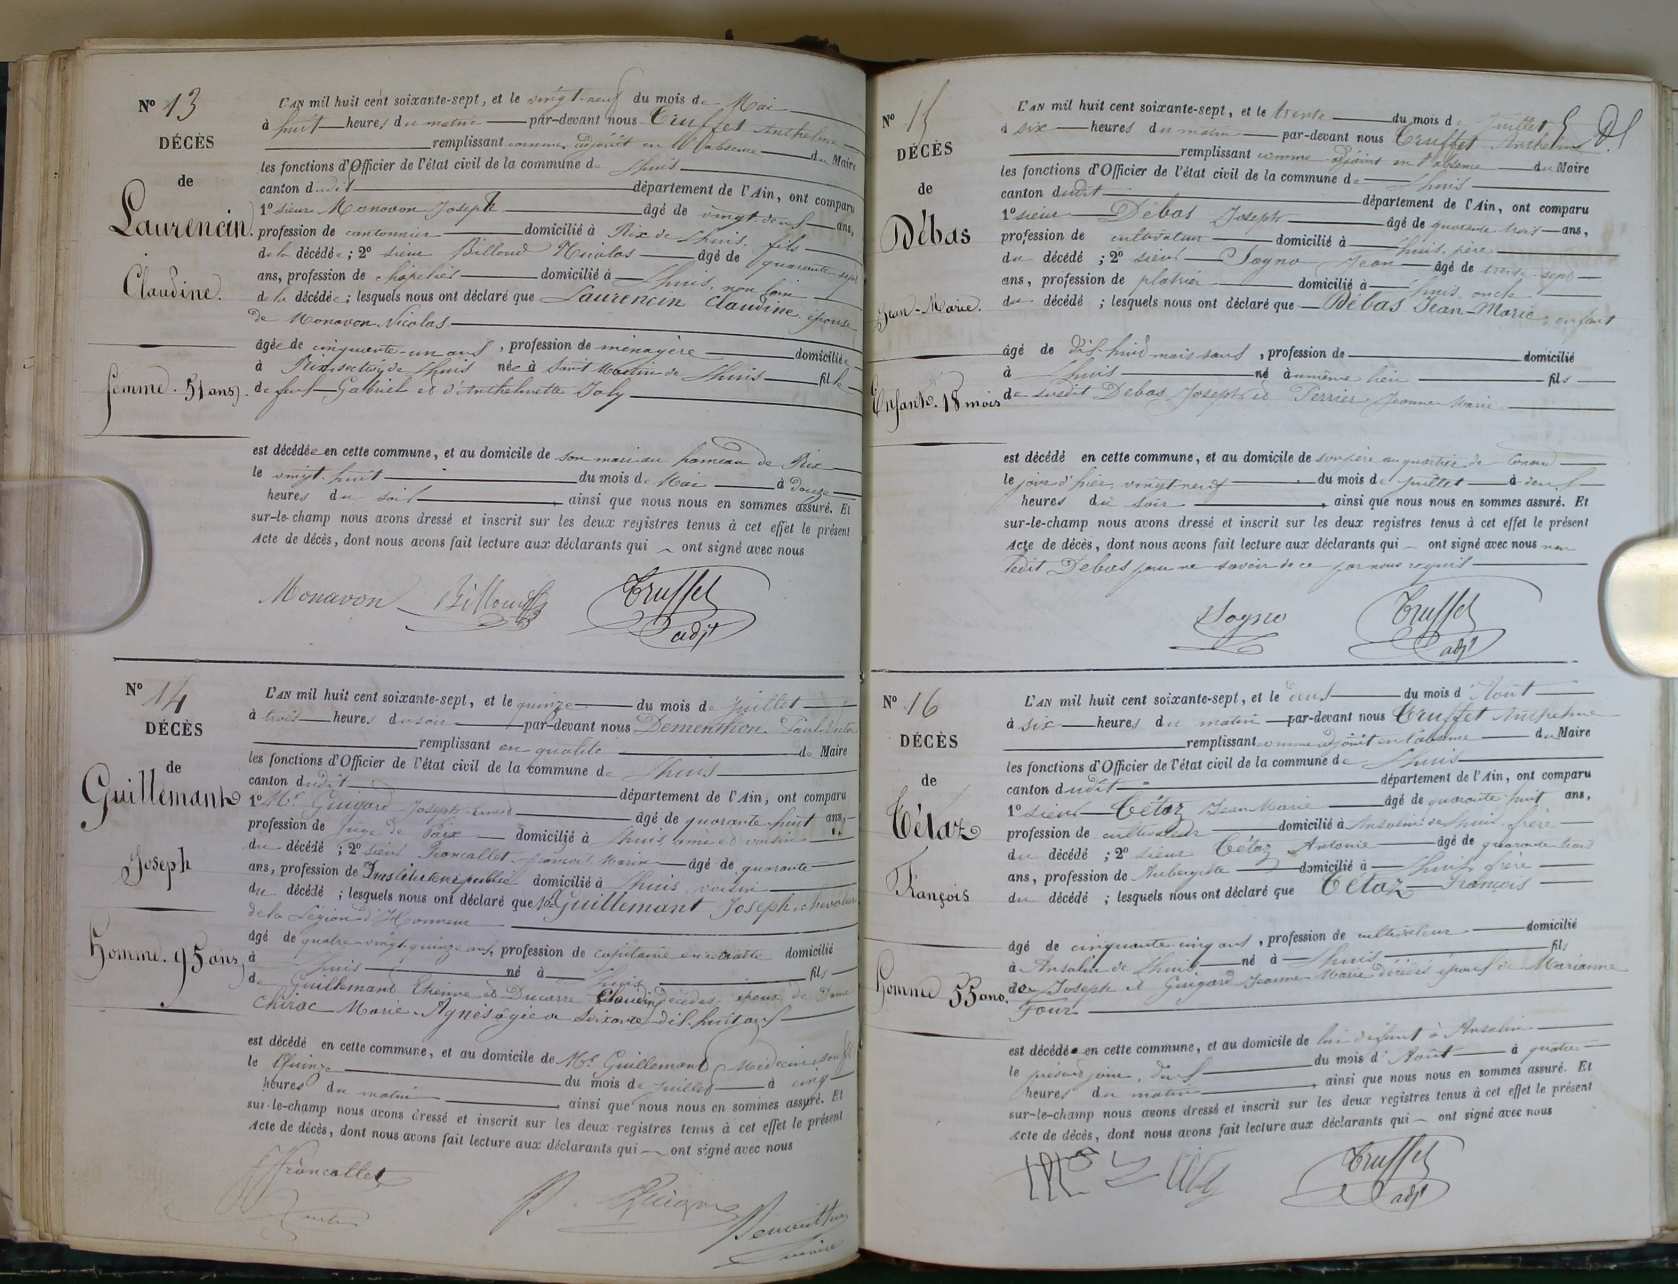 N° 13
DÉCÈS
de
Laurencin
Claudine.
femme. 51 ans.
L'AN mil huit cent soixante-sept, et le vingt-neuf du mois de Mai
à huit heures du matin par-devant nous Truffet Anthelme
remplissant comme adjoint en l'absence du Maire
les fonctions d'Officier de l'état civil de la commune de Lhuis
canton dudit département de l'Ain, ont comparu
1° sieur Monavon Joseph âgé de vingt deux ans,
profession de cantonnier domicilié à Rix de Lhuis fils
de la décédée; 2° sieur Billoud Nicolas âgé de quarante sept
ans, profession de domicilié à Lhuis, non
de la décédée; lesquels nous ont déclaré que Laurencin Claudine épouse
de Monavon Nicolas
âgée de cinquante-un ans, profession de ménagère domiciliée
à Rix, section de Lhuis née à Saint Martin de Lhuis fille
de feu Gabriel et d'Anthelmette Joly
est décédée en cette commune, et au domicile de son mari au hameau de Rix
le vingt huit du mois de Mai à douze
heures du soir, ainsi que nous nous en sommes assuré. Et
sur-le-champ nous avons dressé et inscrit sur les deux registres tenus à cet effet le présent
Acte de décès, dont nous avons fait lecture aux déclarants qui ont signé avec nous
Monavon Billoud Truffet
adjt
N° 14
DÉCÈS
de
Guillemant
Joseph
homme. 95 ans
L'AN mil huit cent soixante-sept, et le quinze du mois de juillet
à trois heures du soir par-devant nous Dementhon
remplissant en qualité de Maire
les fonctions d'Officier de l'état civil de la commune de Lhuis
canton dudit département de l'Ain, ont comparu
1° Mr Guigard Joseph âgé de quarante-huit ans,
profession de juge de Paix domicilié à Lhuis ami et voisin
du décédé; 2° sieur Froncallet âgé de quarante
ans, profession de Instituteur public domicilié à Lhuis voisin
du décédé; lesquels nous ont déclaré que Guillemant Joseph, chevalier
de la Légion d'Honneur
âgé de quatre-vingt-quinze ans, profession de capitaine en retraite domicilié
à Lhuis né à Lhuis fils
de Guillemant Etienne et Ducarre Claudine décédés, époux de Dame
Chirac Marie-Agnès âgée de soixante dix-huit ans
est décédé en cette commune, et au domicile de Mr Guillemant, Médecin, son fils
le Quinze du mois de juillet à cinq
heures du matin, ainsi que nous nous en sommes assuré. Et
sur-le-champ nous avons dressé et inscrit sur les deux registres tenus à cet effet le présent
Acte de décès, dont nous avons fait lecture aux déclarants qui ont signé avec nous
Froncallet
Dementhon
maire
N° 15
DÉCÈS
de
Débas
Jean-Marie.
Enfant. 18 mois
L'AN mil huit cent soixante-sept, et le trente du mois de juillet
à six heures du matin par-devant nous Truffet Anthelme
remplissant comme adjoint en l'absence du Maire
les fonctions d'Officier de l'état civil de la commune de Lhuis
canton dudit département de l'Ain, ont comparu
1° sieur Débas Joseph âgé de quarante trois ans,
profession de cultivateur domicilié à Lhuis, père
du décédé; 2° sieur Sogno Jean âgé de trente-sept
ans, profession de plâtrier domicilié à Lhuis, oncle
du décédé; lesquels nous ont déclaré que Débas Jean-Marie, enfant
âgé de dix-huit mois sans, profession de domicilié
à Lhuis né au même lieu fils
de susdit Débas Joseph et Perrier Jeanne Marie
est décédé en cette commune, et au domicile de son père au quartier de
le jour d'hier, vingt neuf du mois de juillet à deux
heures du soir, ainsi que nous nous en sommes assuré. Et
sur-le-champ nous avons dressé et inscrit sur les deux registres tenus à cet effet le présent
Acte de décès, dont nous avons fait lecture aux déclarants qui ont signé avec nous non
ledit Débas pour ne savoir de ce par nous requis
Sogno Truffet
adjt
N° 16
DÉCÈS
de
Cétaz
François
homme 55 ans.
L'AN mil huit cent soixante-sept, et le deux du mois d'Août
à six heures du matin par-devant nous Truffet Anthelme
remplissant comme adjoint en l'absence du Maire
les fonctions d'Officier de l'état civil de la commune de Lhuis
canton dudit département de l'Ain, ont comparu
1° sieur Cétaz Jean Marie âgé de quarante huit ans,
profession de cultivateur domicilié à Ansolin de Lhuis frère
du décédé; 2° sieur Cétaz Antoine âgé de quarante
ans, profession de Aubergiste domicilié à Lhuis, frère
du décédé; lesquels nous ont déclaré que Cétaz François
âgé de cinquante-cinq ans, profession de cultivateur domicilié
à Ansolin de Lhuis né à Lhuis fils
de Joseph et Guigard Jeanne Marie décédés époux de Marianne
Four
est décédé en cette commune, et au domicile de lui défunt à Ansolin
le présent jour, deux du mois d'Août à quatre
heures du matin, ainsi que nous nous en sommes assuré. Et
sur-le-champ nous avons dressé et inscrit sur les deux registres tenus à cet effet le présent
Acte de décès, dont nous avons fait lecture aux déclarants qui ont signé avec nous
Truffet
adjt